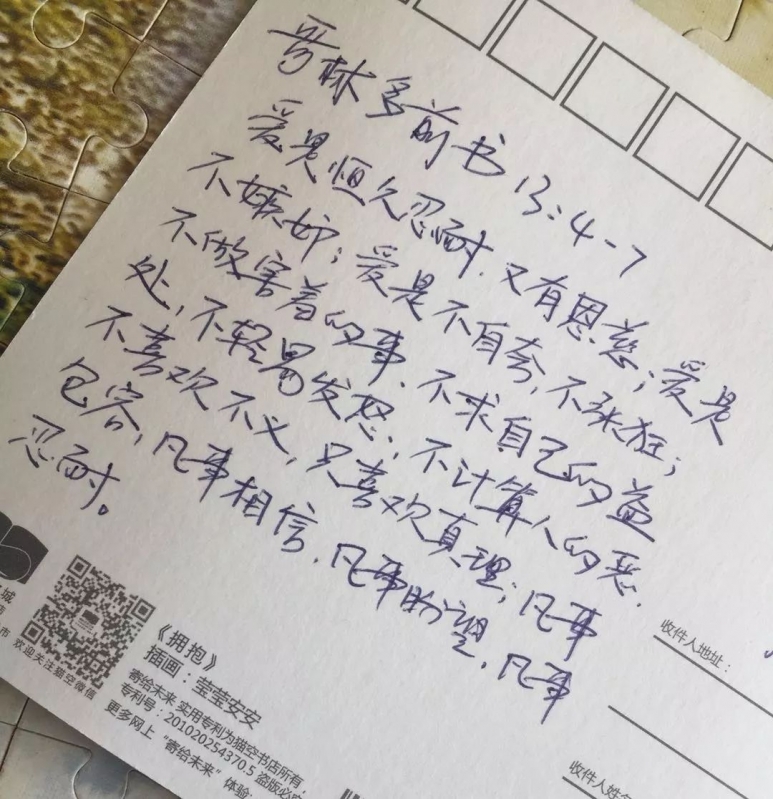 哥林多前书 13:4-7
爱是恒久忍耐,又有恩慈;爱是
不嫉妒;爱是不自夸,不张狂;
不做害羞的事,不求自己的益
处,不轻易发怒;不计算人的恶,
不喜欢不义,只喜欢真理;凡事
包容,凡事相信,凡事盼望,凡事
忍耐。
收件人地址:
收件人姓名
城
店
市
欢迎关注猫空微信
《拥抱》
插画:莹莹安安
寄给未来 实用专利为猫空书店所有,
专利号:201020254370.5 盗版必究
更多网上“寄给未来”体验